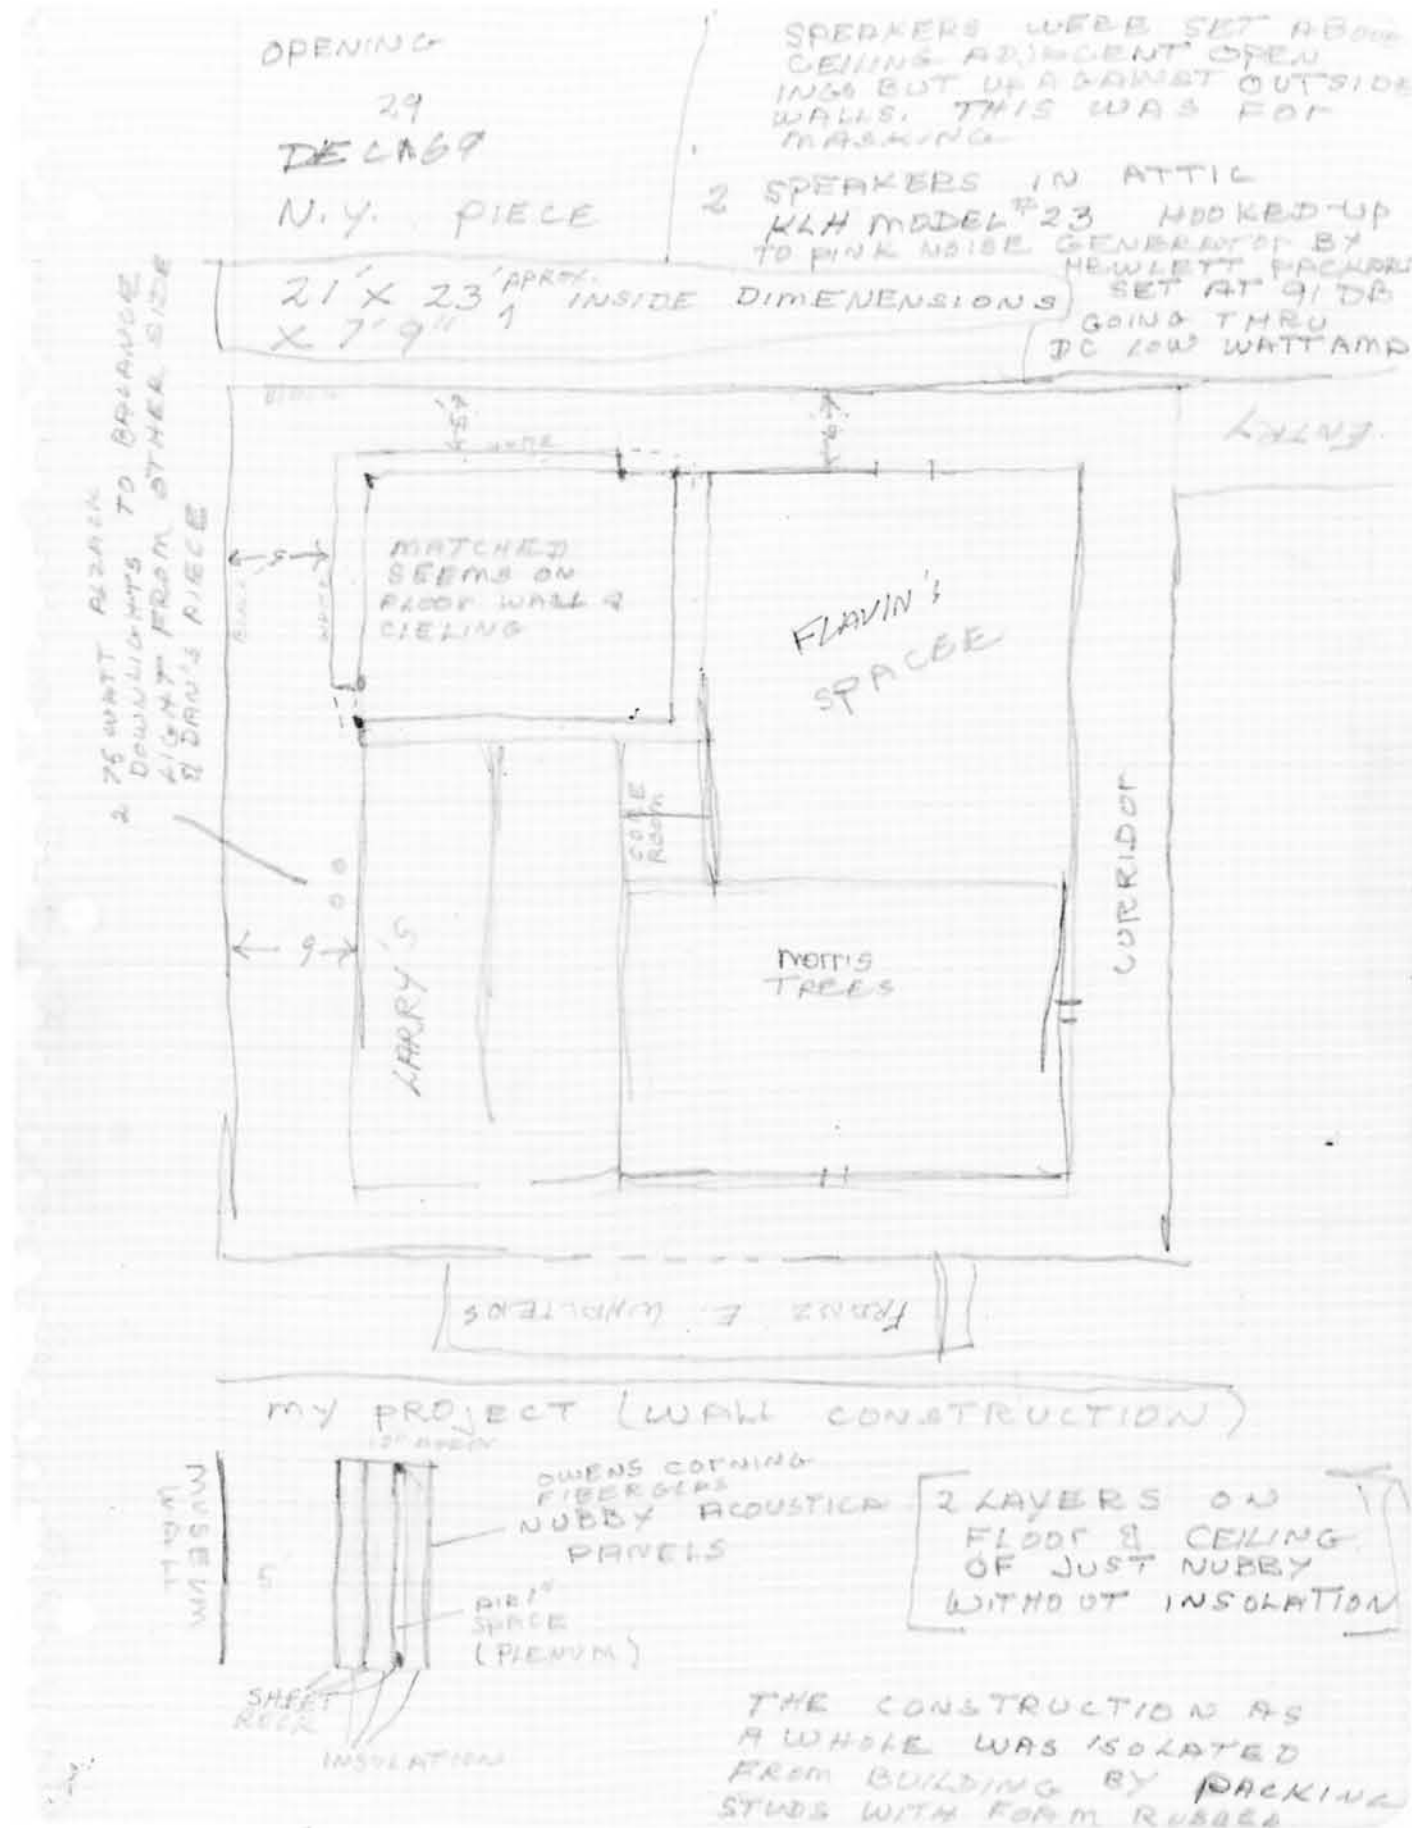 OPENING
29
DEC 69
N.Y. PIECE
SPEAKERS WERE SET ABOVE
CEILING ADJACENT OPEN
INGS BUT UP AGAINST OUTSIDE
WALLS. THIS WAS FOR
MASKING
2 SPEAKERS IN ATTIC
KLH MODEL #23 HOOKED-UP
TO PINK NOISE GENERATOR BY
HEWLETT PACKARD
SET AT 91 DB
GOING THRU
DC LOW WATT AMP
21' X 23' APROX.
INSIDE DIMENENSIONS
X 7' 9"
2 75 WATT ALZACK
DOWNLIGHTS TO BALANCE
LIGHT FROM OTHER SIDE
& DAN'S PIECE
ENTRY
MATCHED
SEEMS ON
FLOOR WALL &
CIELING
FLAVIN'S
SPACEE
CORRIDOR
ROOM
9
LARRY'S
MORRIS
TREES
FRANZ E WHALTERS
MY PROJECT (WALL CONSTRUCTION)
MUSEUM
WALL
5
OWENS CORNING
FIBERGLAS
NUBBY ACOUSTICA
PANELS
AIR 1"
SPACE
(PLENUM)
SHEET
ROCK
INSOLATION
2 LAYERS ON
FLOOR & CEILING
OF JUST NUBBY
WITHOUT INSOLATION
THE CONSTRUCTION AS
A WHOLE WAS ISOLATED
FROM BUILDING BY PACKING
STUDS WITH FOAM RUBBER